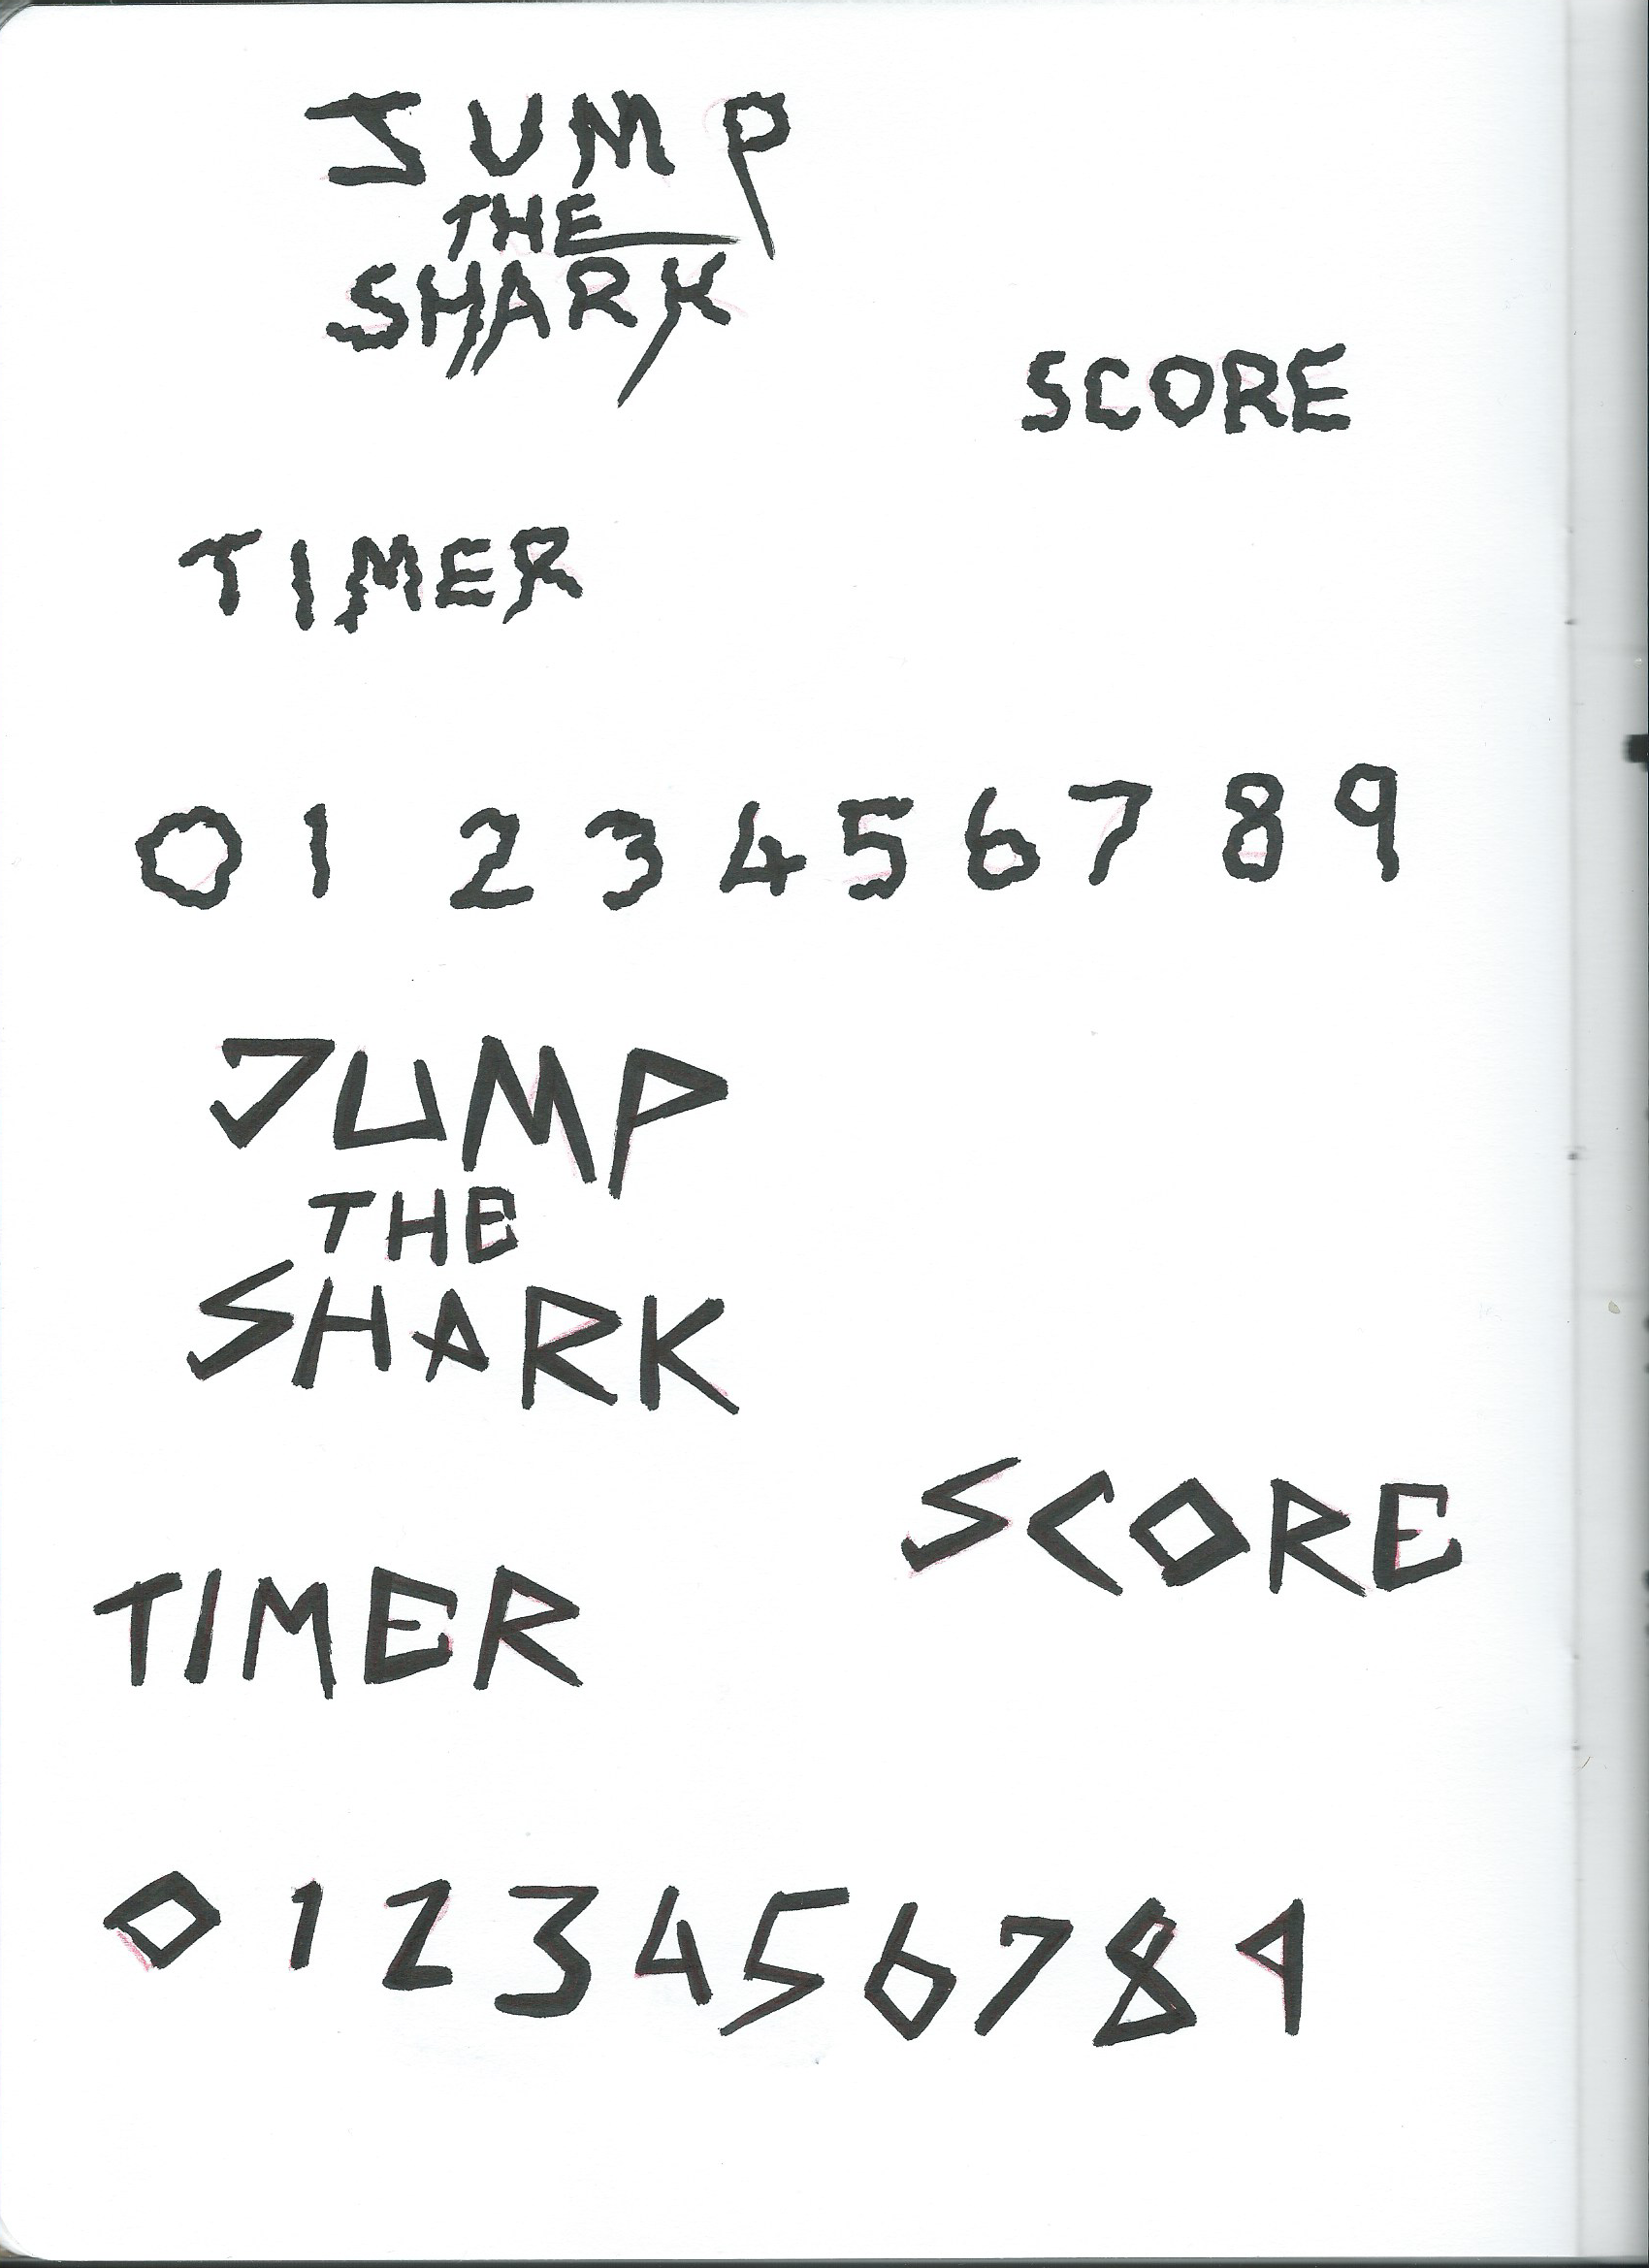 JUMP
THE
SHARK
SCORE
TIMER
0 1 2 3 4 5 6 7 8 9
JUMP
THE
SHARK
SCORE
TIMER
0 1 2 3 4 5 6 7 8 9